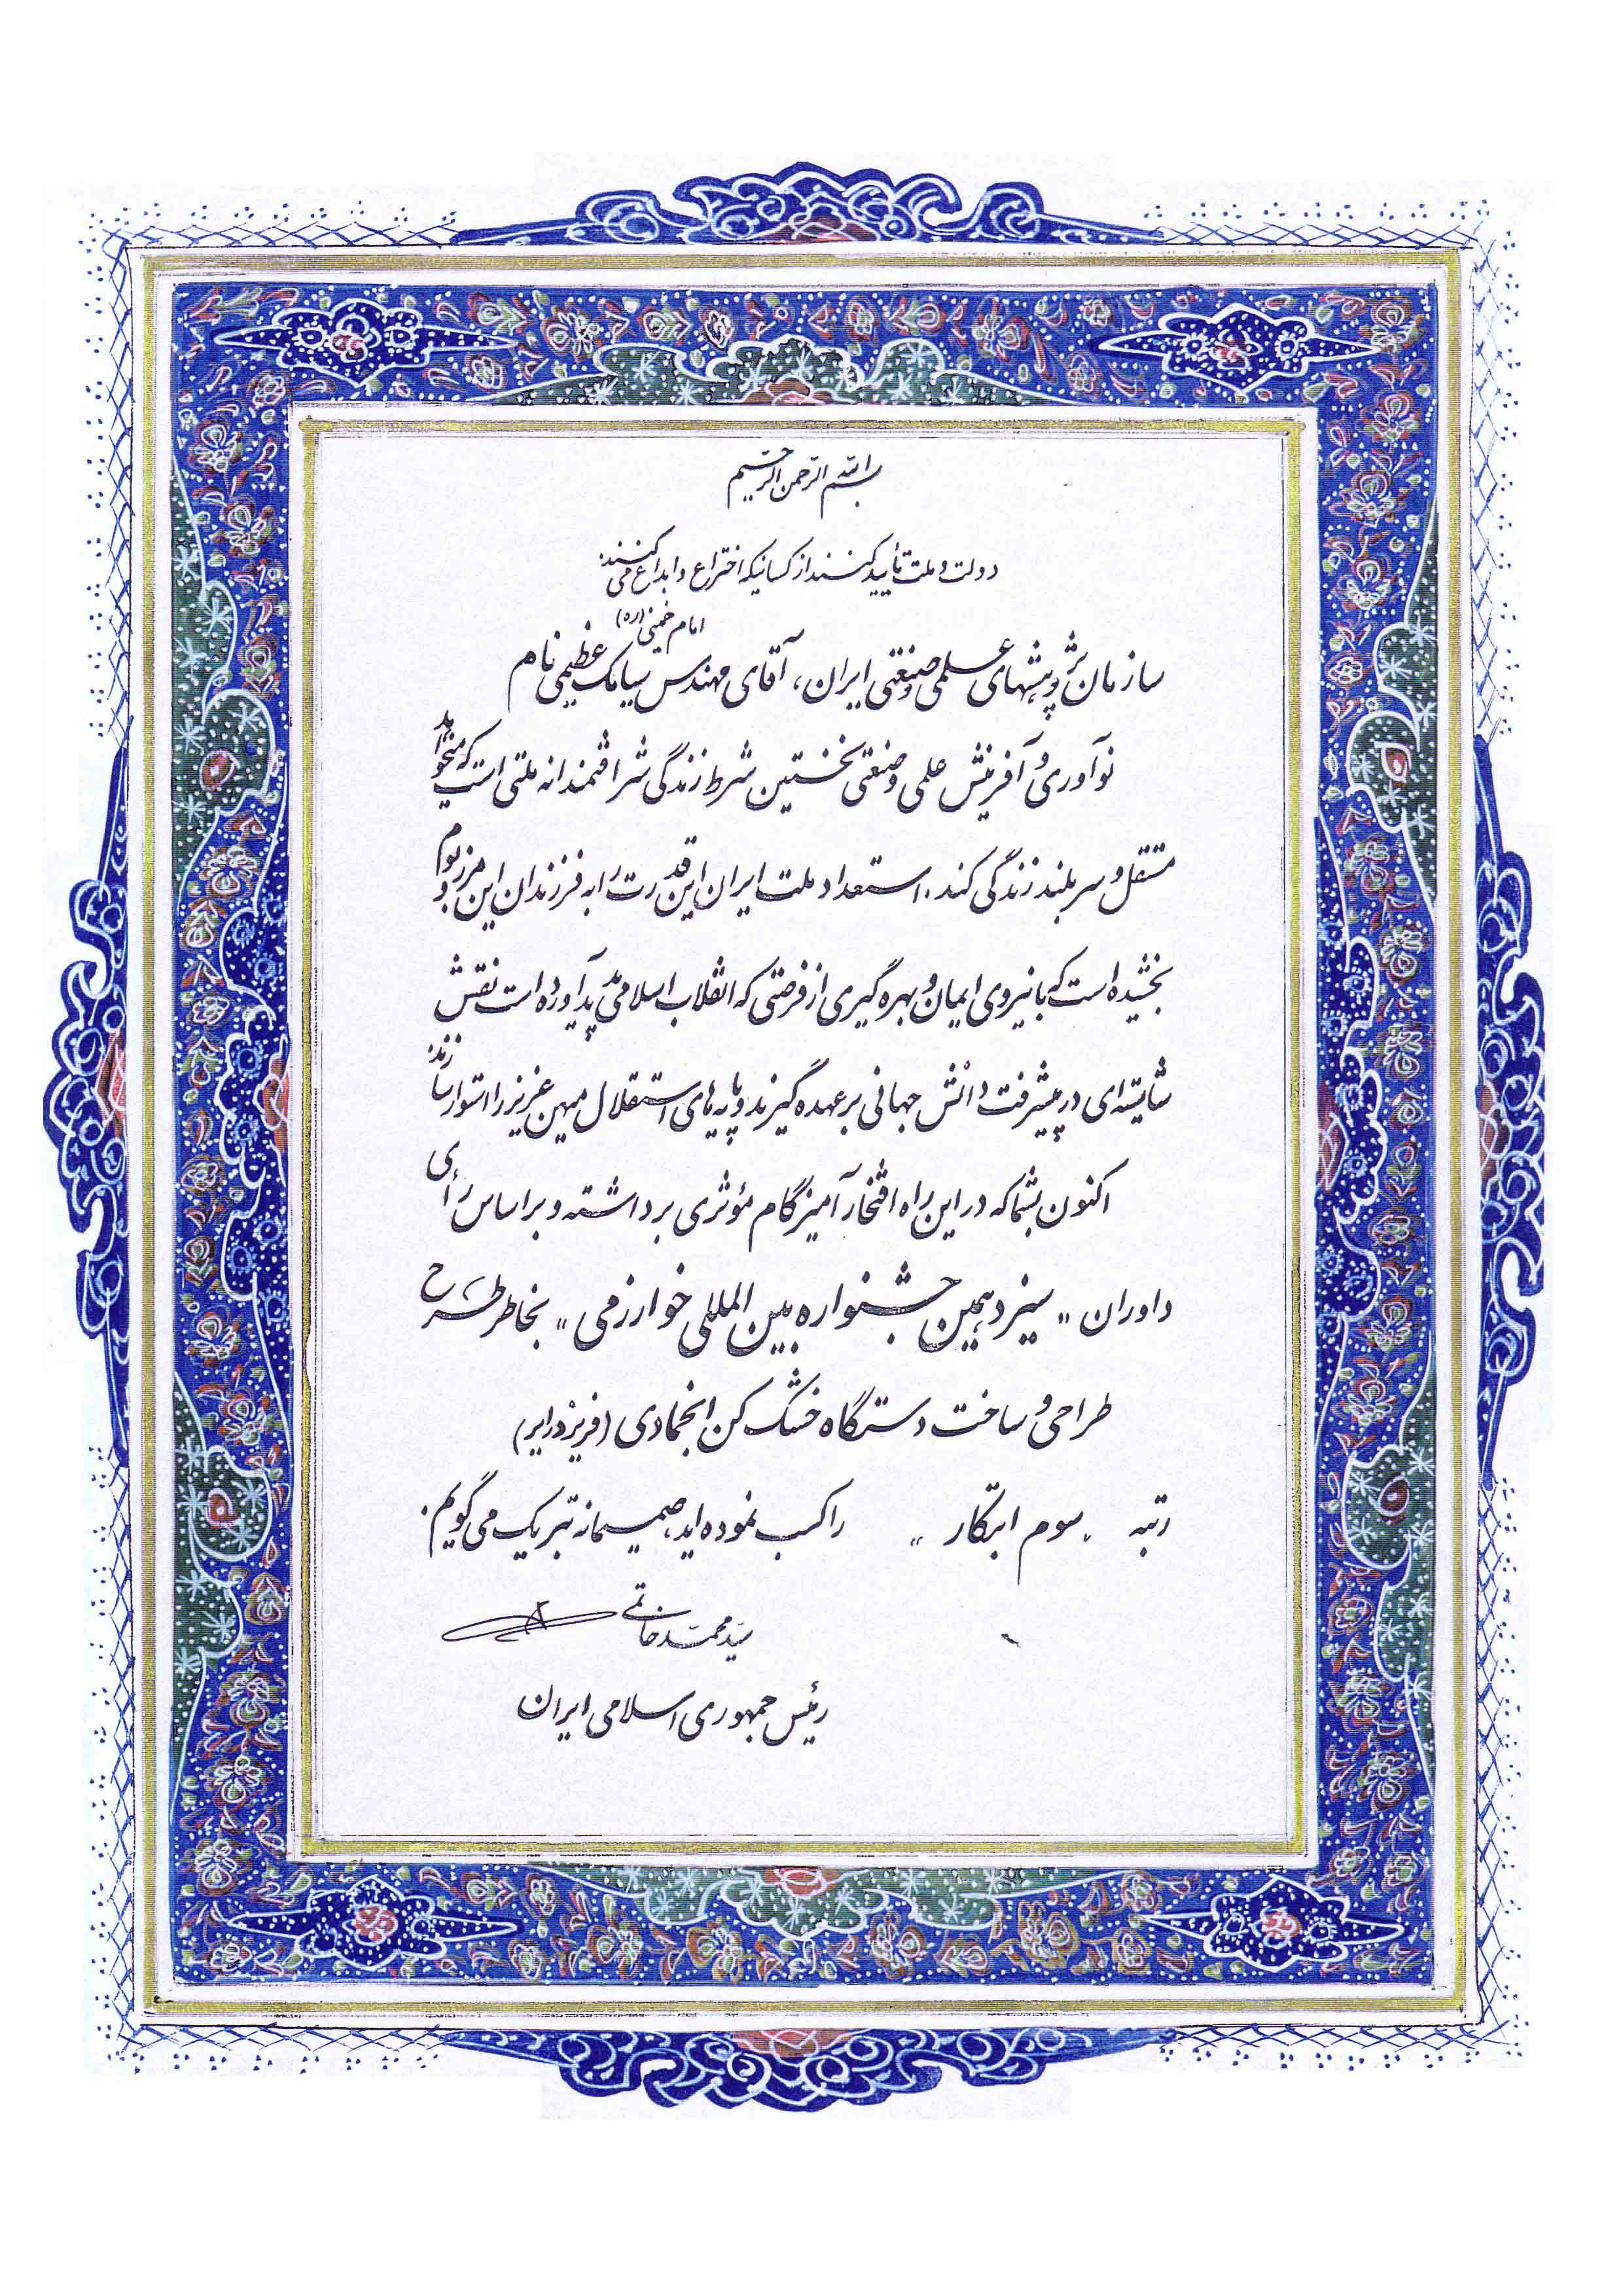 بسم الله الرحمن الرحیم
دولت و ملت تأیید کنند از کسانیکه اختراع و ابداع می کنند
امام خمینی (ره)
سازمان پژوهشهای علمی و صنعتی ایران، آقای مهندس سیامک عظیمی نام
نوآوری و آفرینش علمی و صنعتی نخستین شرط زندگی شرافتمندانه ملتی است که میخواهد
مستقل و سربلند زندگی کند. استعداد ملت ایران این قدرت را به فرزندان این مرز و بوم
بخشیده است که با نیروی ایمان و بهره گیری از فرصتی که انقلاب اسلامی پدید آورده است نقش
شایسته ای در پیشرفت دانش جهانی بر عهده گیرند و پایه های استقلال میهن عزیز را استوار سازند.
اکنون بشما که در این راه افتخار آمیز گام مؤثری برداشته و بر اساس رأی
داوران "سیزدهمین جشنواره بین المللی خوارزمی" بخاطر طرح
طراحی و ساخت دستگاه خشک کن انجمادی (فریز درایر)
رتبه "سوم ابتکار" را کسب نموده اید، صمیمانه تبریک می گویم.
سید محمد خاتمی
رئیس جمهوری اسلامی ایران